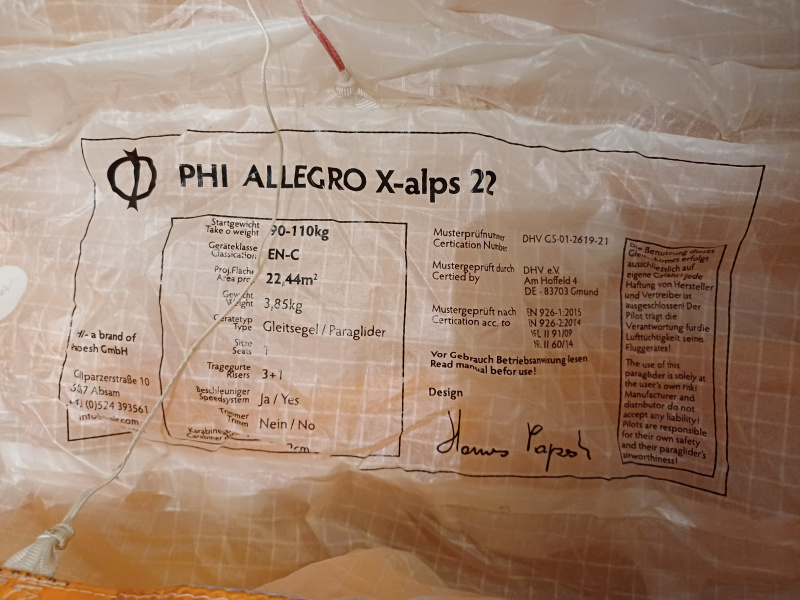 PHI ALLEGRO X-alps 22
Startgewicht
Take o weight
90-110kg
Geräteklasse
Classication
EN-C
Proj.Fläche
Area pro
22,44m²
Gewicht
Weight
3,85kg
Gerätetyp
Type
Gleitsegel / Paraglider
Sitze
Seats
1
Tragegurte
Risers
3+1
Beschleuniger
Speedsystem
Ja / Yes
Trimmer
Trimm
Nein / No
a brand of
GmbH
Gilparzerstraße 10
Absam
+43 (0)524 393561
Musterprüfnummer
Certication Number
DHV GS-01-2619-21
Mustergeprüft durch
Certied by
DHV e.V.
Am Hoffeld 4
DE - 83703 Gmund
Mustergeprüft nach
Certication acc. to
EN 926-1:2015
EN 926-2:2014
II 91/09
II 60/14
Vor Gebrauch Betriebsanweisung lesen
Read manual before use!
Design
Die Benutzung dieses
erfolgt
ausschliesslich auf
eigene Gefahr! Jede
Haftung von Hersteller
und Vertreiber ist
ausgeschlossen! Der
Pilot trägt die
Verantwortung für die
Lufttüchtigkeit seines
Fluggerätes!
The use of this
paraglider is solely at
the user's own risk!
Manufacturer and
distributor do not
accept any liability!
Pilots are responsible
for their own safety
and their paraglider's
airworthiness!